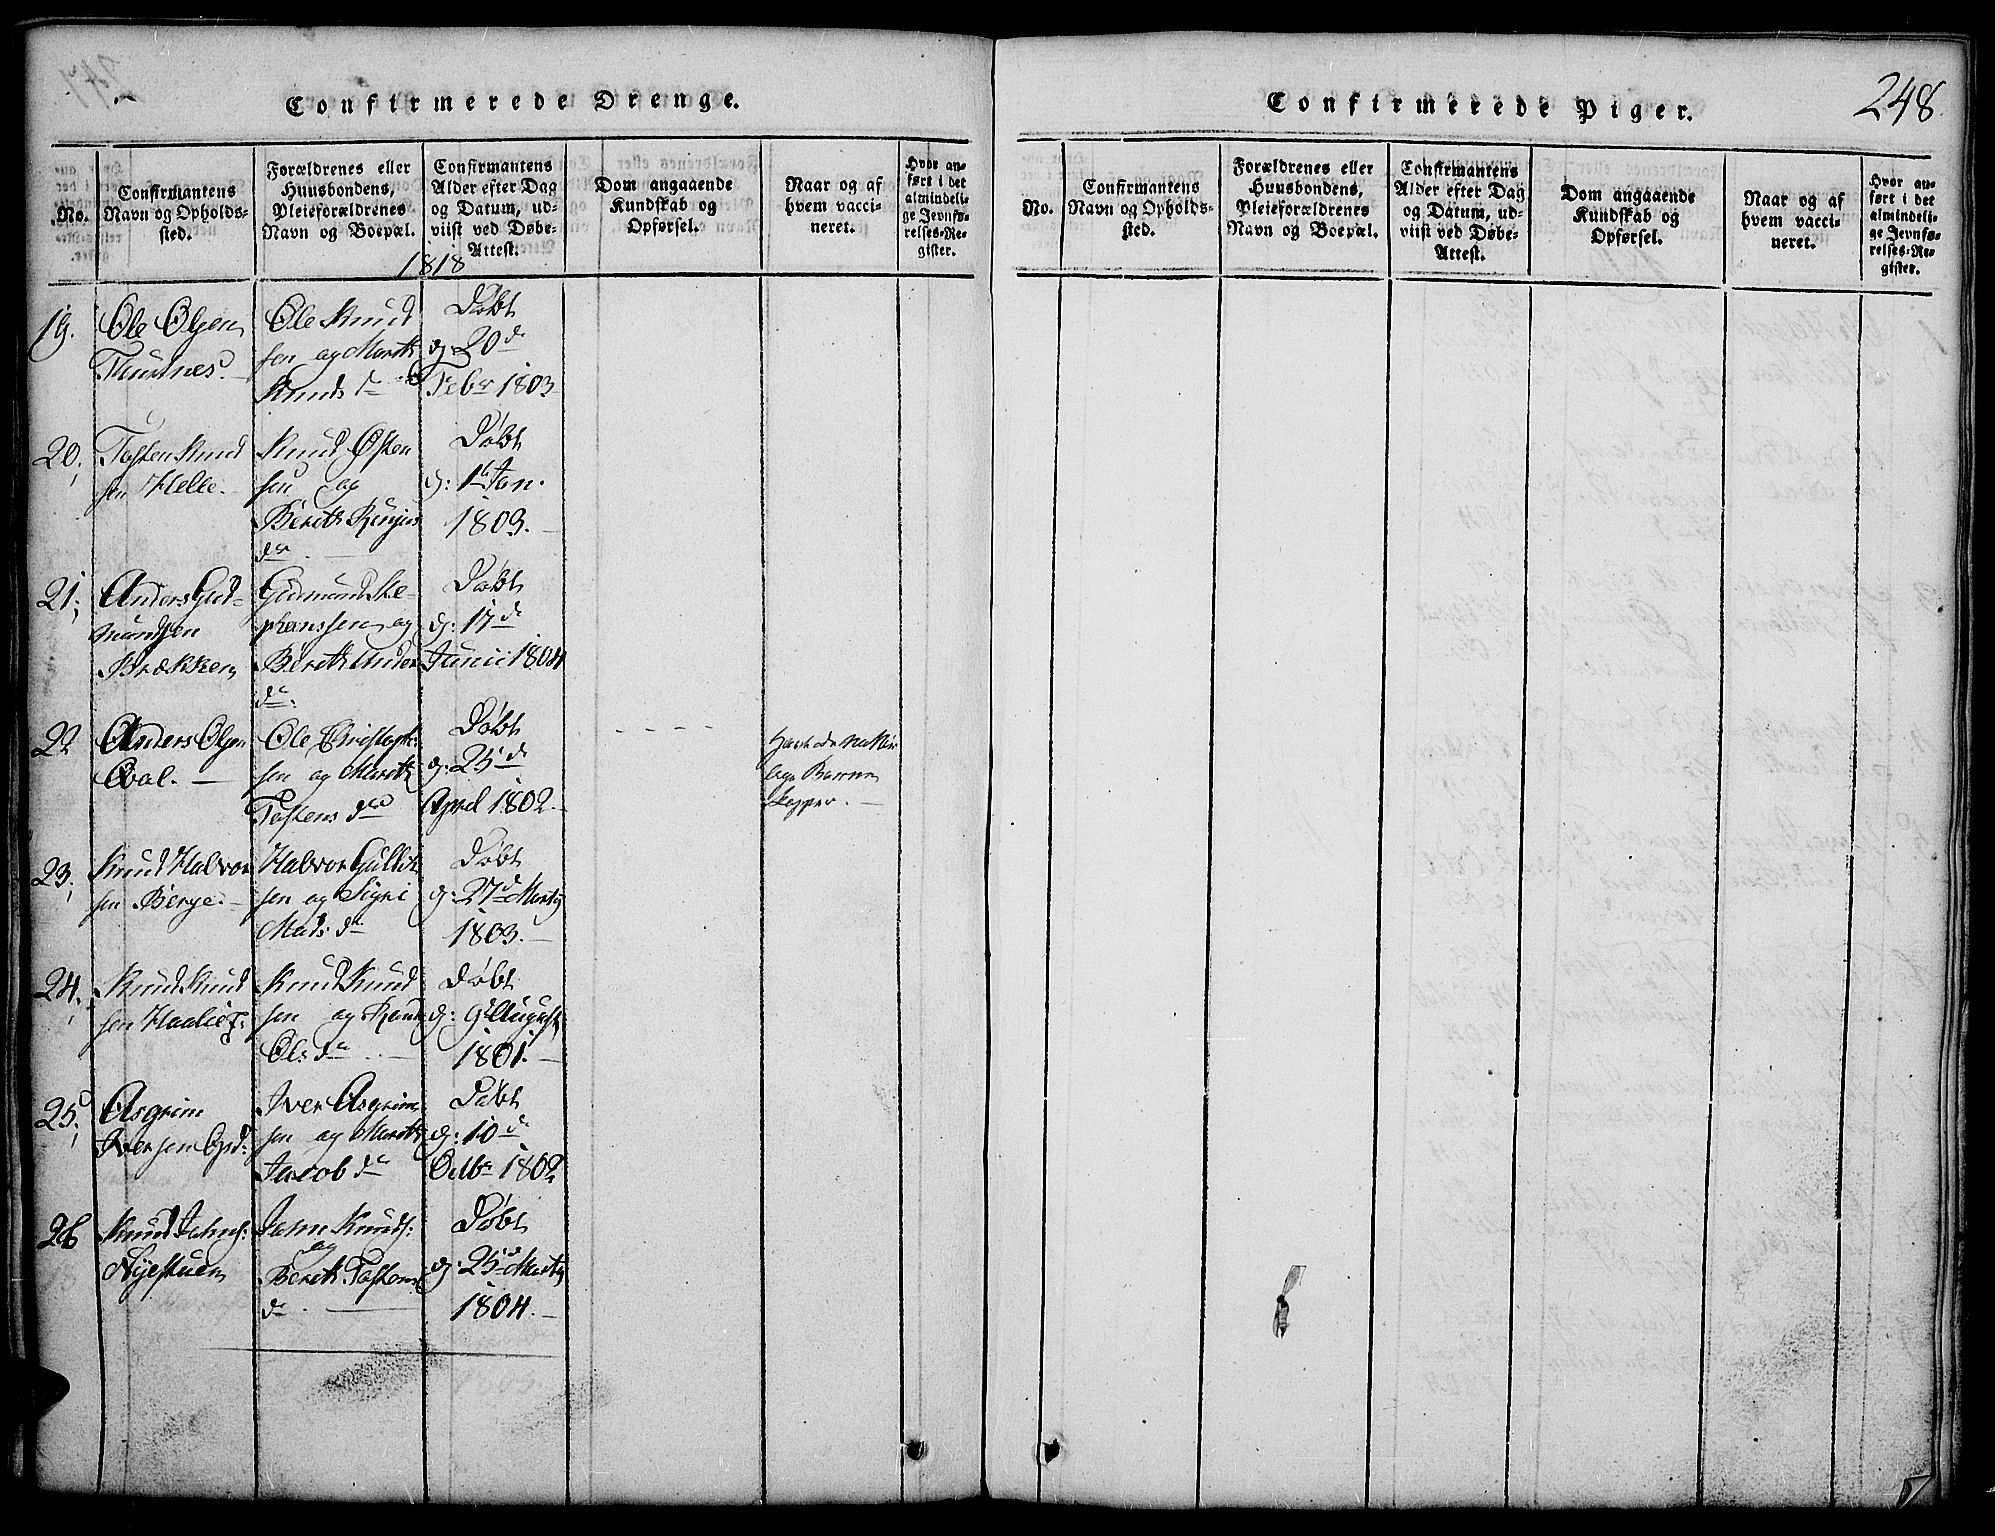 Confirmerede Drenge.
No.
Confirmantens
Navn og Opholds-
sted.
Forældrenes eller
Huusbondens,
Pleieforældrenes
Navn og Boepæl.
Confirmantens
Alder efter Dag
og Datum, ud-
viist ved Døbe-
Attest.
Dom angaaende
Kundskab og
Opførsel.
Naar og af
hvem vacci-
neret.
Hvor an-
ført i det
almindeli-
ge Jevnfø-
relses-Re-
gister.
1818
19.
Ole Olsen
Ole Knud
sen og Marith
Knuds d
Døbt
d: 20de
Febr 1803
20.
Tosten Knud
sen Helle.
Knud Østen
sen og
Berith
dr.
Døbt
d: 1te Jan.
1803.
21.
Anders Gud-
mundsen
Brækken
Gudmund Ste-
phanssen og
Berith Anders
dr.
Døbt
d: 17de
Junii 1804
22
Anders Olsen
Ole Christoph:
sen og Marith
Tostens dr
Døbt
d: 25de
April 1802.
Havt de
lige Børne
kopper.
23.
Knud Halvor
sen Berge.
Halvor Gullik
sen og Sigri
Mads dr
Døbt
d: 27de Marty
1803.
24.
Knud Knud
sen
Knud Knud
sen og
Ols dr
Døbt
d: 9de August
1801.
25.
Asgrim
Iversen
Iver Asgrim
sen og Marith
Jacob dr
Døbt
d: 10de
Octbr 1802
26
Knud Johns:
Nyestuen
John Knuds:
og
Berith Tostens
dr.
Døbt
d: 25de Marty
1804.
Confirmerede Piger.
248
No.
Confirmantens
Navn og Opholds-
sted.
Forældrenes eller
Huusbondens,
Pleieforældrenes
Navn og Boepæl.
Confirmantens
Alder efter Dag
og Datum, ud-
viist ved Døbe-
Attest.
Dom angaaende
Kundskab og
Opførsel.
Naar og af
hvem vacci-
neret.
Hvor an-
ført i det
almindeli-
ge Jevnfø-
relses-Re-
gister.